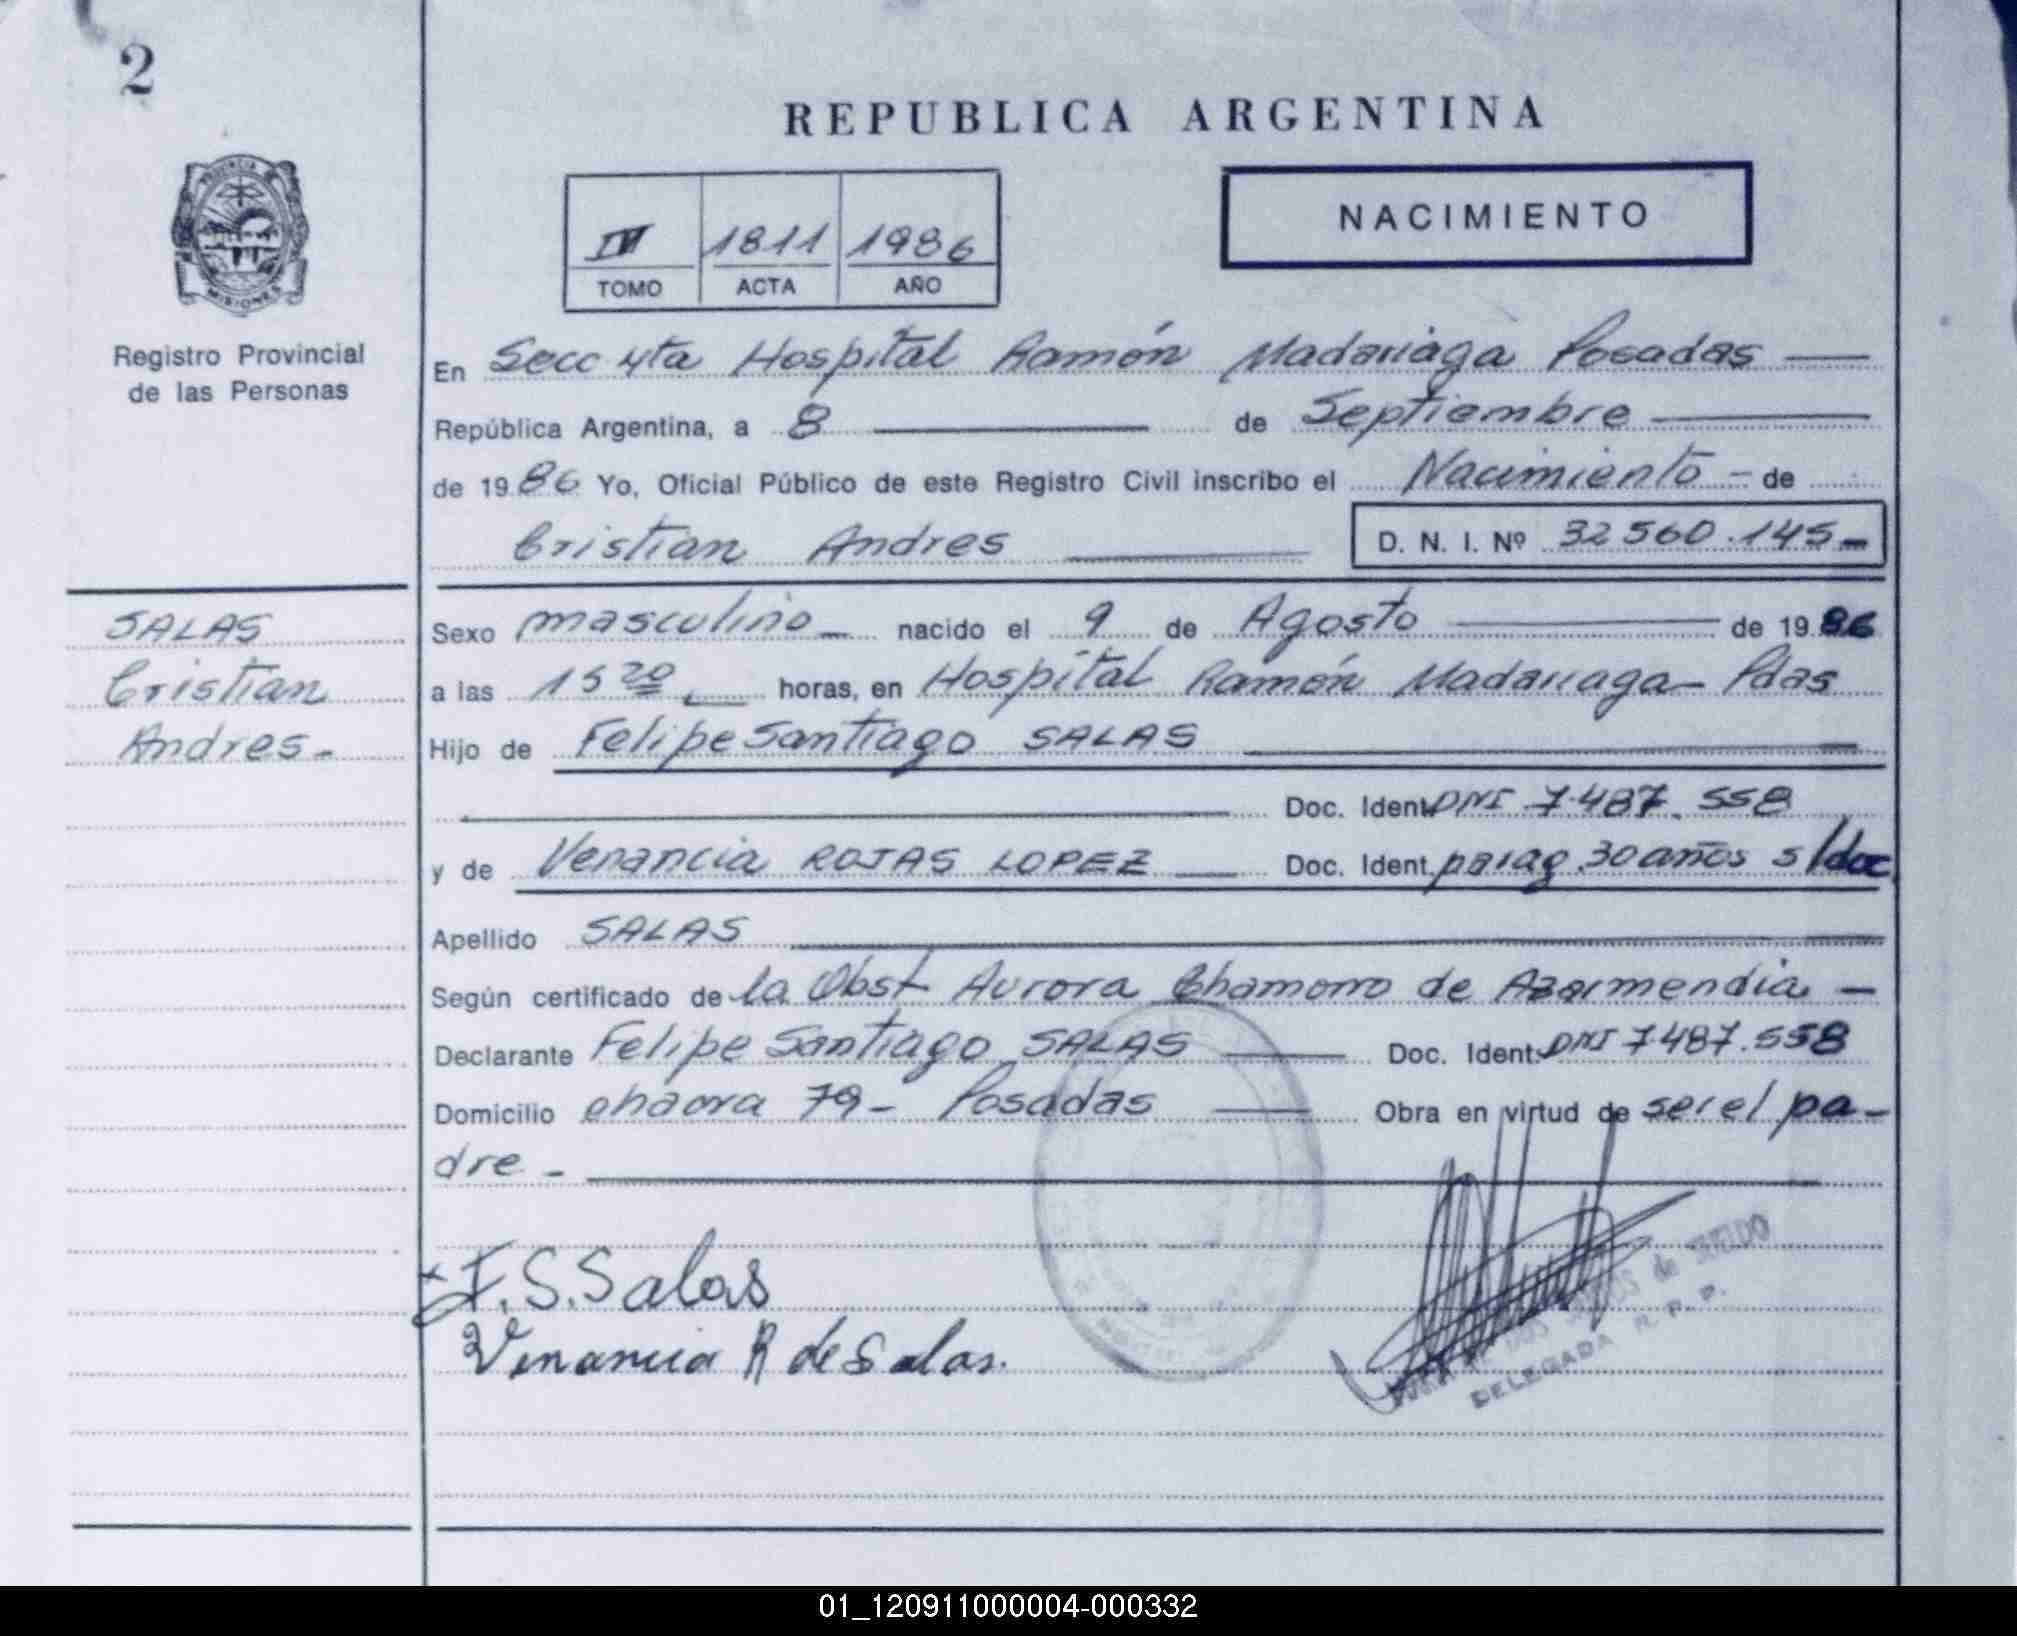 2
REPUBLICA ARGENTINA
PROVINCIA DE
MISIONES
Registro Provincial
de las Personas
IV 1811 1986
TOMO ACTA AÑO
NACIMIENTO
En Secc 4ta Hospital Ramón Madariaga Posadas
República Argentina, a 8 de Septiembre
de 1986 Yo, Oficial Público de este Registro Civil inscribo el Nacimiento - de
Cristian Andres D. N. I. Nº 32560.145-
SALAS
Cristian
Andres-
Sexo masculino nacido el 9 de Agosto de 1986
a las 15 20 horas, en Hospital Ramón Madariaga- Pdas
Hijo de Felipe Santiago SALAS
Doc. Ident. DNI 7.487.558
y de Venancia ROJAS LOPEZ Doc. Ident. parag. 30 años s/doc
Apellido SALAS
Según certificado de la Obst Aurora Chamorro de Azarmendia -
Declarante Felipe Santiago SALAS Doc. Ident. DNI 7487.558
Domicilio chacra 79- Posadas Obra en virtud de ser el pa-
dre -
F. S. Salas
Venancia R de Salas.
de
DELEGADA R. P. P.
01_120911000004-000332